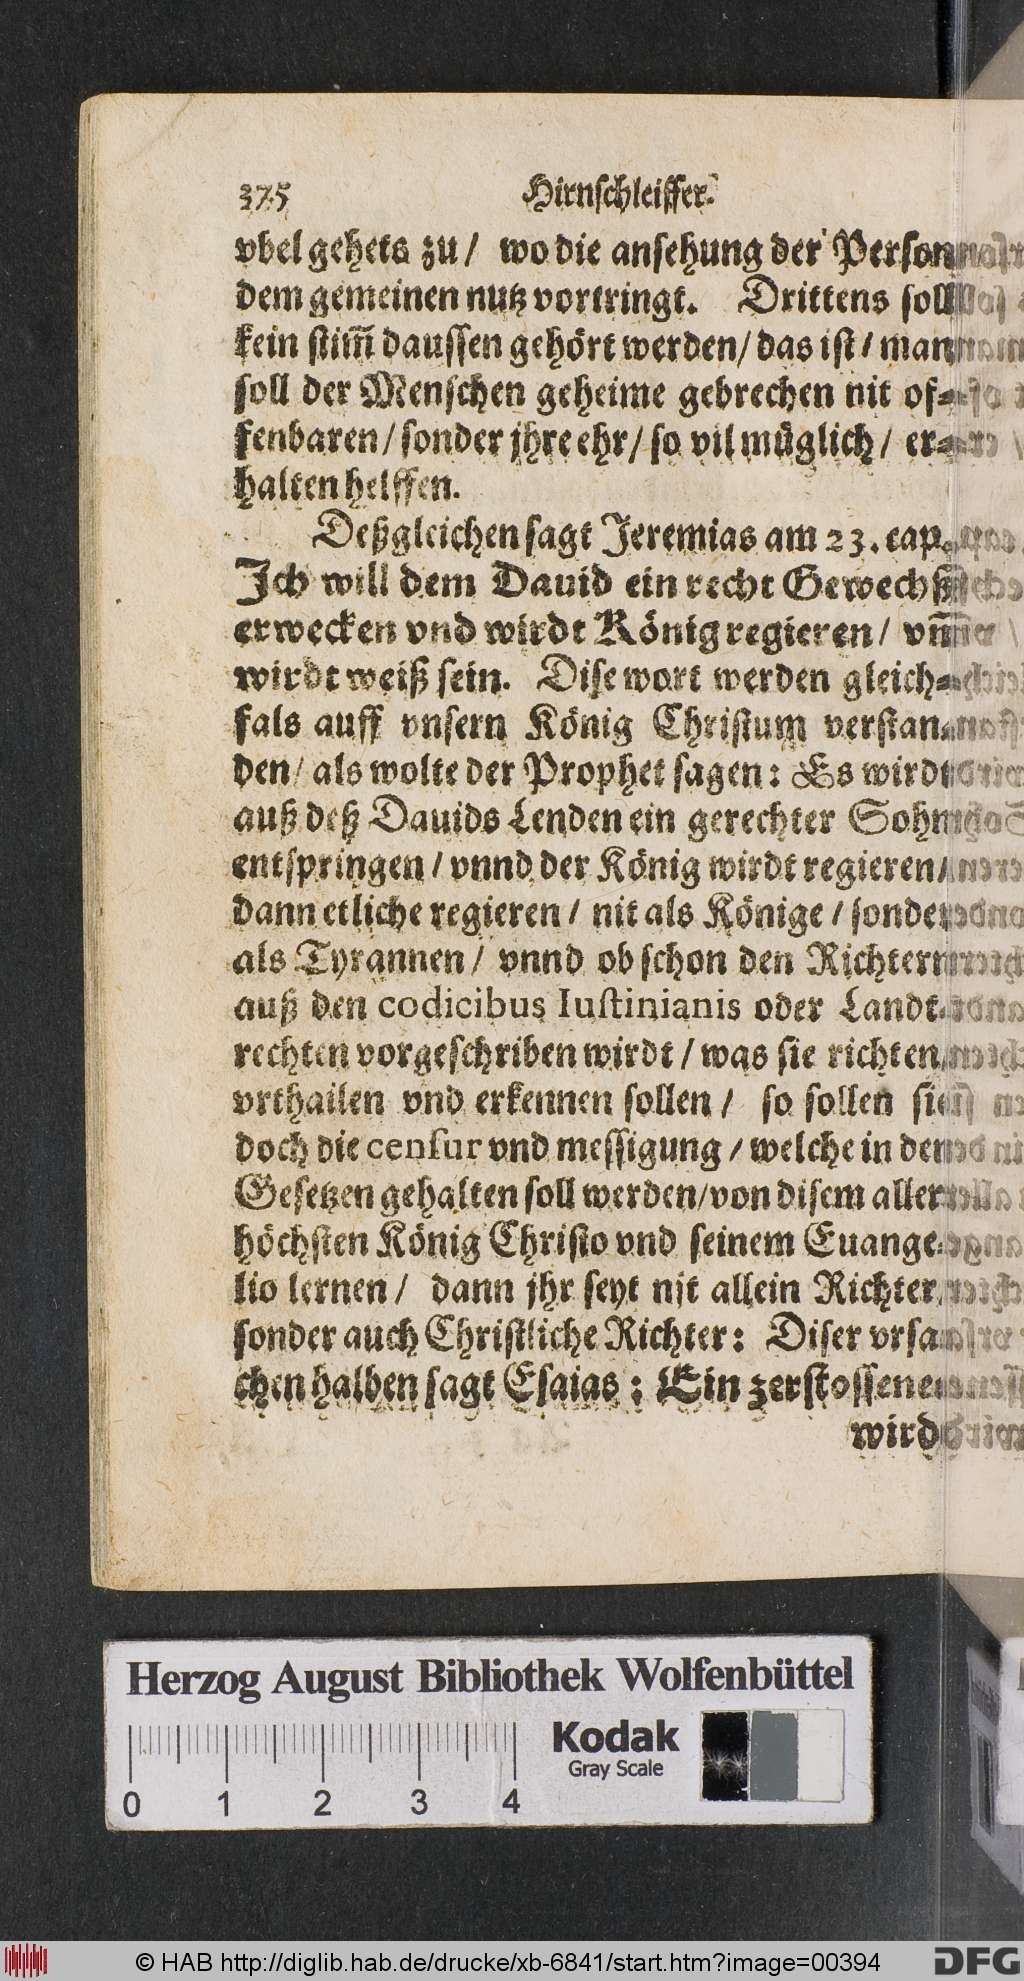 375 Hirnschleiffer.
vbel gehets zu / wo die ansehung der Person
dem gemeinen nutz vortringt. Drittens soll
kein stim̃ daussen gehört werden / das ist / man
soll der Menschen geheime gebrechen nit of⸗
fenbaren / sonder jhre ehr / so vil müglich / er⸗
halten helffen.
Deßgleichen sagt Jeremias am 23. cap.
Ich will dem Dauid ein recht Gewechß
erwecken vnd wirdt König regieren / vñ
wirdt weiß sein. Dise wort werden gleich⸗
fals auff vnsern König Christum verstan⸗
den / als wolte der Prophet sagen: Es wirdt
auß deß Dauids Lenden ein gerechter Sohn
entspringen / vnnd der König wirdt regieren /
dann etliche regieren / nit als Könige / sonder
als Tyrannen / vnnd ob schon den Richtern
auß den codicibus Iustinianis oder Landt⸗
rechten vorgeschriben wirdt / was sie richten
vrthailen vnd erkennen sollen / so sollen sie
doch die censur vnd messigung / welche in den
Gesetzen gehalten soll werden / von disem aller
höchsten König Christo vnd seinem Euange⸗
lio lernen / dann jhr seyt nit allein Richter
sonder auch Christliche Richter: Diser vrsa⸗
chen halben sagt Esaias: Ein zerstossene
wird
Herzog August Bibliothek Wolfenbüttel
Kodak
Gray Scale
0 1 2 3 4
© HAB http://diglib.hab.de/drucke/xb-6841/start.htm?image=00394
DFG